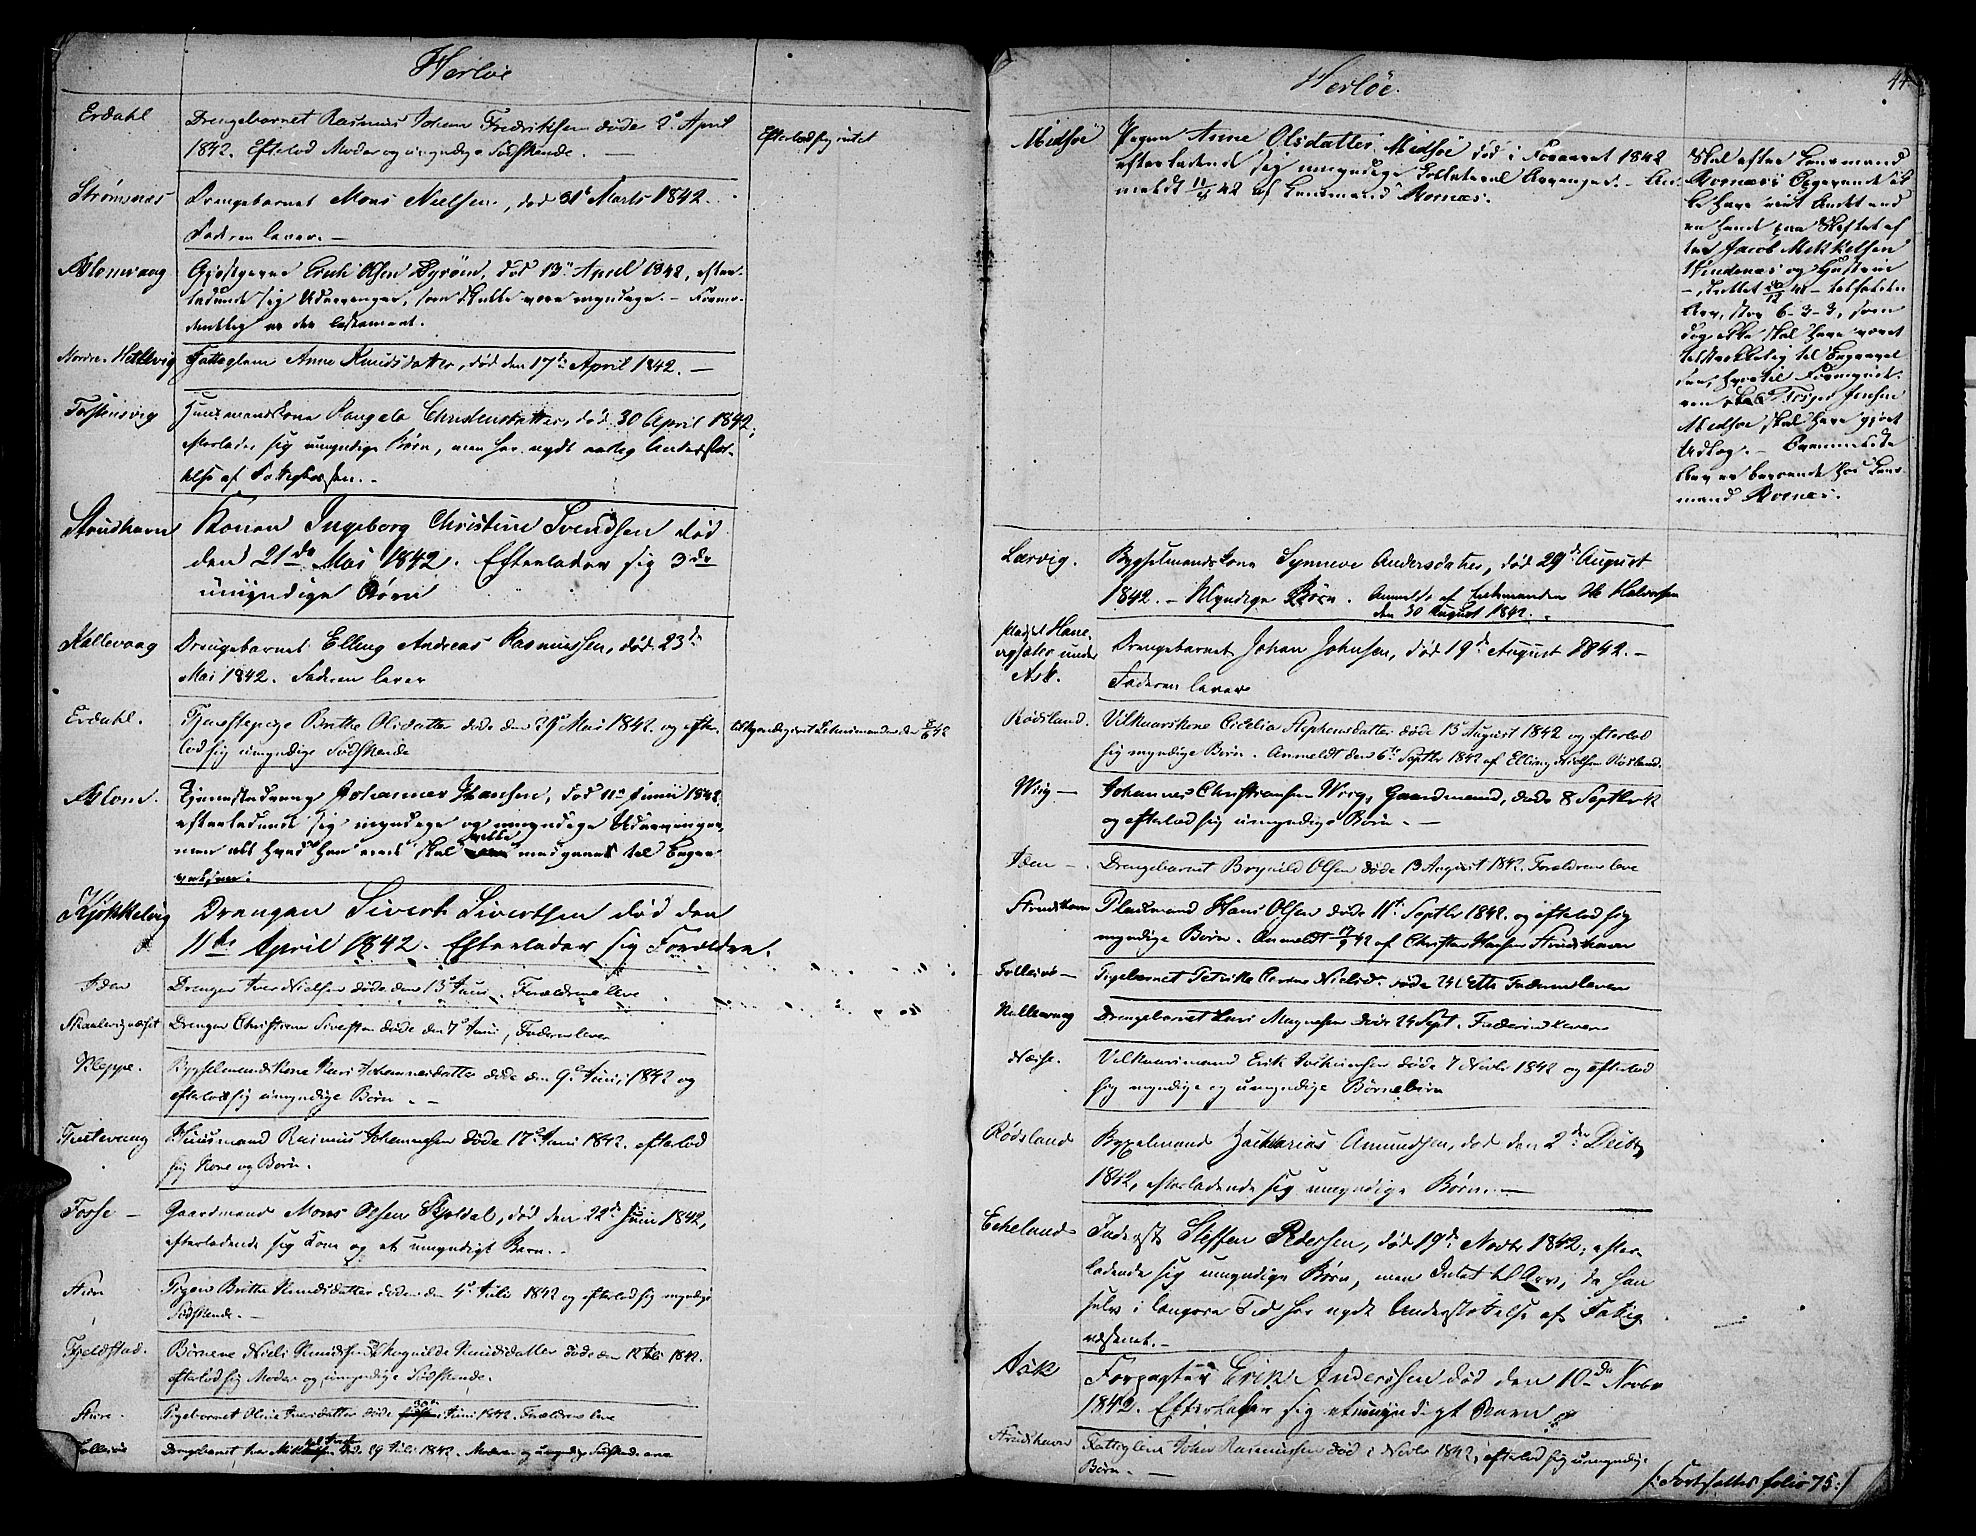 Herløe
Erdahl
Drengebarnet Rasmus Johan Fredriksen døde 2d April
1842. Efterlod Moder og umyndige Sødskende. —
Efterlod sig intet
Strømsnæs
Drengebarnet Mons Nielsen, død 31te Marts 1842.
Faderen lever. —
Gjæstgever Erik Olsen død 13de April 1842, efter-
ladende sig Udarvinger, som skulle være myndige. —
er der testament.
Nordre Hetlevig
Fattiglem Anne Knudsdatter, død den 17de April 1842. —
Torstensvig
Huusmandskone Rangela Christensdatter, død 30 April 1842,
efterlader sig umyndige Børn, men har nydt aarlig Understøt-
telse af Fattigkassen. —
Strudshavn
Konen Ingeborg Christine Svendsen død
den 21de Mai 1842. Efterlader sig 3de
umyndige Børn
Kallevaag
Drengebarnet Elling Andreas Rasmussen, død 23de
Mai 1842. Faderen lever
Erdahl.
Tjenestepige Brithe Olsdatter døde den 29de Mai 1842 og efter-
lod sig umyndige Sødskende
Tjenestedreng Johannes Hansen, død 11te Junii 1842
efterladende sig myndige og umyndige Udarvinger,
men alt hvad han eiede skal ville medgaaet til Begra-
velsen.
Kjøkkelvig
Drengen Sivert Sivertsen død den
11te April 1842. Efterlader sig Forældre.
Drengen Iver Nielsen døde den 13de Juni. Forældrene leve
Skaalevignæset
Drengen Christian Sivertsen døde den 7de Juni, Faderen lever
Kleppe.
Bygselmandskone Kari Johannesdatter døde den 9de Juni 1842 og
efterlod sig umyndige Børn. —
Huusmand Rasmus Johannesen døde 17de Juni 1842. efterlod
sig Kone og Børn.
Fosse —
Gaardmand Mons Olsen Skjoldal, død den 22de Juni 1842,
efterladende sig Kone og et umyndigt Barn. —
Pigen Brithe Knudsdatter døde den 4de Juli 1842 og efterlod sig myndige
Sødskende. —
Fjeldstad.
Børnene Niels Knudsen og Ragnilde Knudsdatter døde den 12 Juli 1842.
efterlod sig Moder og umyndige Sødskende.
Sture.
Pigebarnet Oline Iversdatter døde Juni 1842. Forældrene leve
Drengebarnet Iver døde 24 Juli 1842. Moder og umyndige Sødskende
Herløe.
44
Midsøe
Pigen Anne Olsdatter Midsøe død i Foraaret 1842
efterladende sig umyndige Collateral Arvinger. — An-
meldt 11/8 42 af Lensmand Rornæs.
Skal efter Lensmand
Rornæs's Opgivende ik-
ke have eiet Andet end
en hende paa Skiftet ef-
ter Jacob Mikkelsen
Vindenæs og Hustrue
— sluttet — tilfalden
Arv, stor 6-3-3, som
dog ikke skal have været
tilstrækkelig til Begravel-
sen, hvortil Formynde-
ren Jensen
Midsøe skal have gjort
Udlæg. — Bemmeldte
Arv er beroende hos Lens-
mand Rornæs.
Lervig.
Bygselmandskone Synneve Andersdatter, død 29de August
1842. — Myndige Børn. Anmeldt af Enkemanden Ole Halvorsen
den 30 August 1842.
Pladset Hane-
under
Ask.
Drengebarnet Johan Johnsen, død 19de August 1842. —
Faderen lever
Rødsland.
Vilkaarskone Cicelia Stephensdatter døde 13de August 1842 og efterlod
sig myndige Børn. Anmeldt den 6te Septbr 1842 af Elling Nielsen Rødsland.
Wiig —
Johannes Christiansen Wiig, Gaardmand, døde 8 Septbr 42
og efterlod sig umyndige Børn. —
Drengebarnet Olsen døde 13 August 1842. Forældrene leve
Strudshavn
Pladsmand Hans Olsen døde 11te Septbr 1842 og efterlod sig
myndige Børn. Anmeldt 17/9 42 af Christen Hansen Strudshavn
Follesøe —
Pigebarnet Petrikke Nielsd. døde Faderen lever
Kallevaag
Drengebarnet Lars Magnesen døde 24 Sept. Faderen lever
Næsse.
Vilkaarsmand Erik døde 7 Novbr 1842 og efterlod
sig myndige og umyndige Børnebørn
Rødsland
Bygselmand Zacharias Amundsen, død den 2den Decbr
1842, efterladende sig umyndige Børn. —
Echeland
Inderst Steffen Pedersen, død 19de Novbr 1842, efter-
ladende sig umyndige Børn, men Intet til Arv, da han
selv i længere Tid har nydt Understøttelse af Fattig-
væsenet. —
Ask
Forpagter Erik Anderssen død den 10de Novbr
1842. Efterlader sig et umyndigt Barn
Strudshavn
Fattiglem Johan Rasmussen død i Novbr 1842, efterlod sig umyndige
Børn. —
/: Fortsættes folio 75 :/